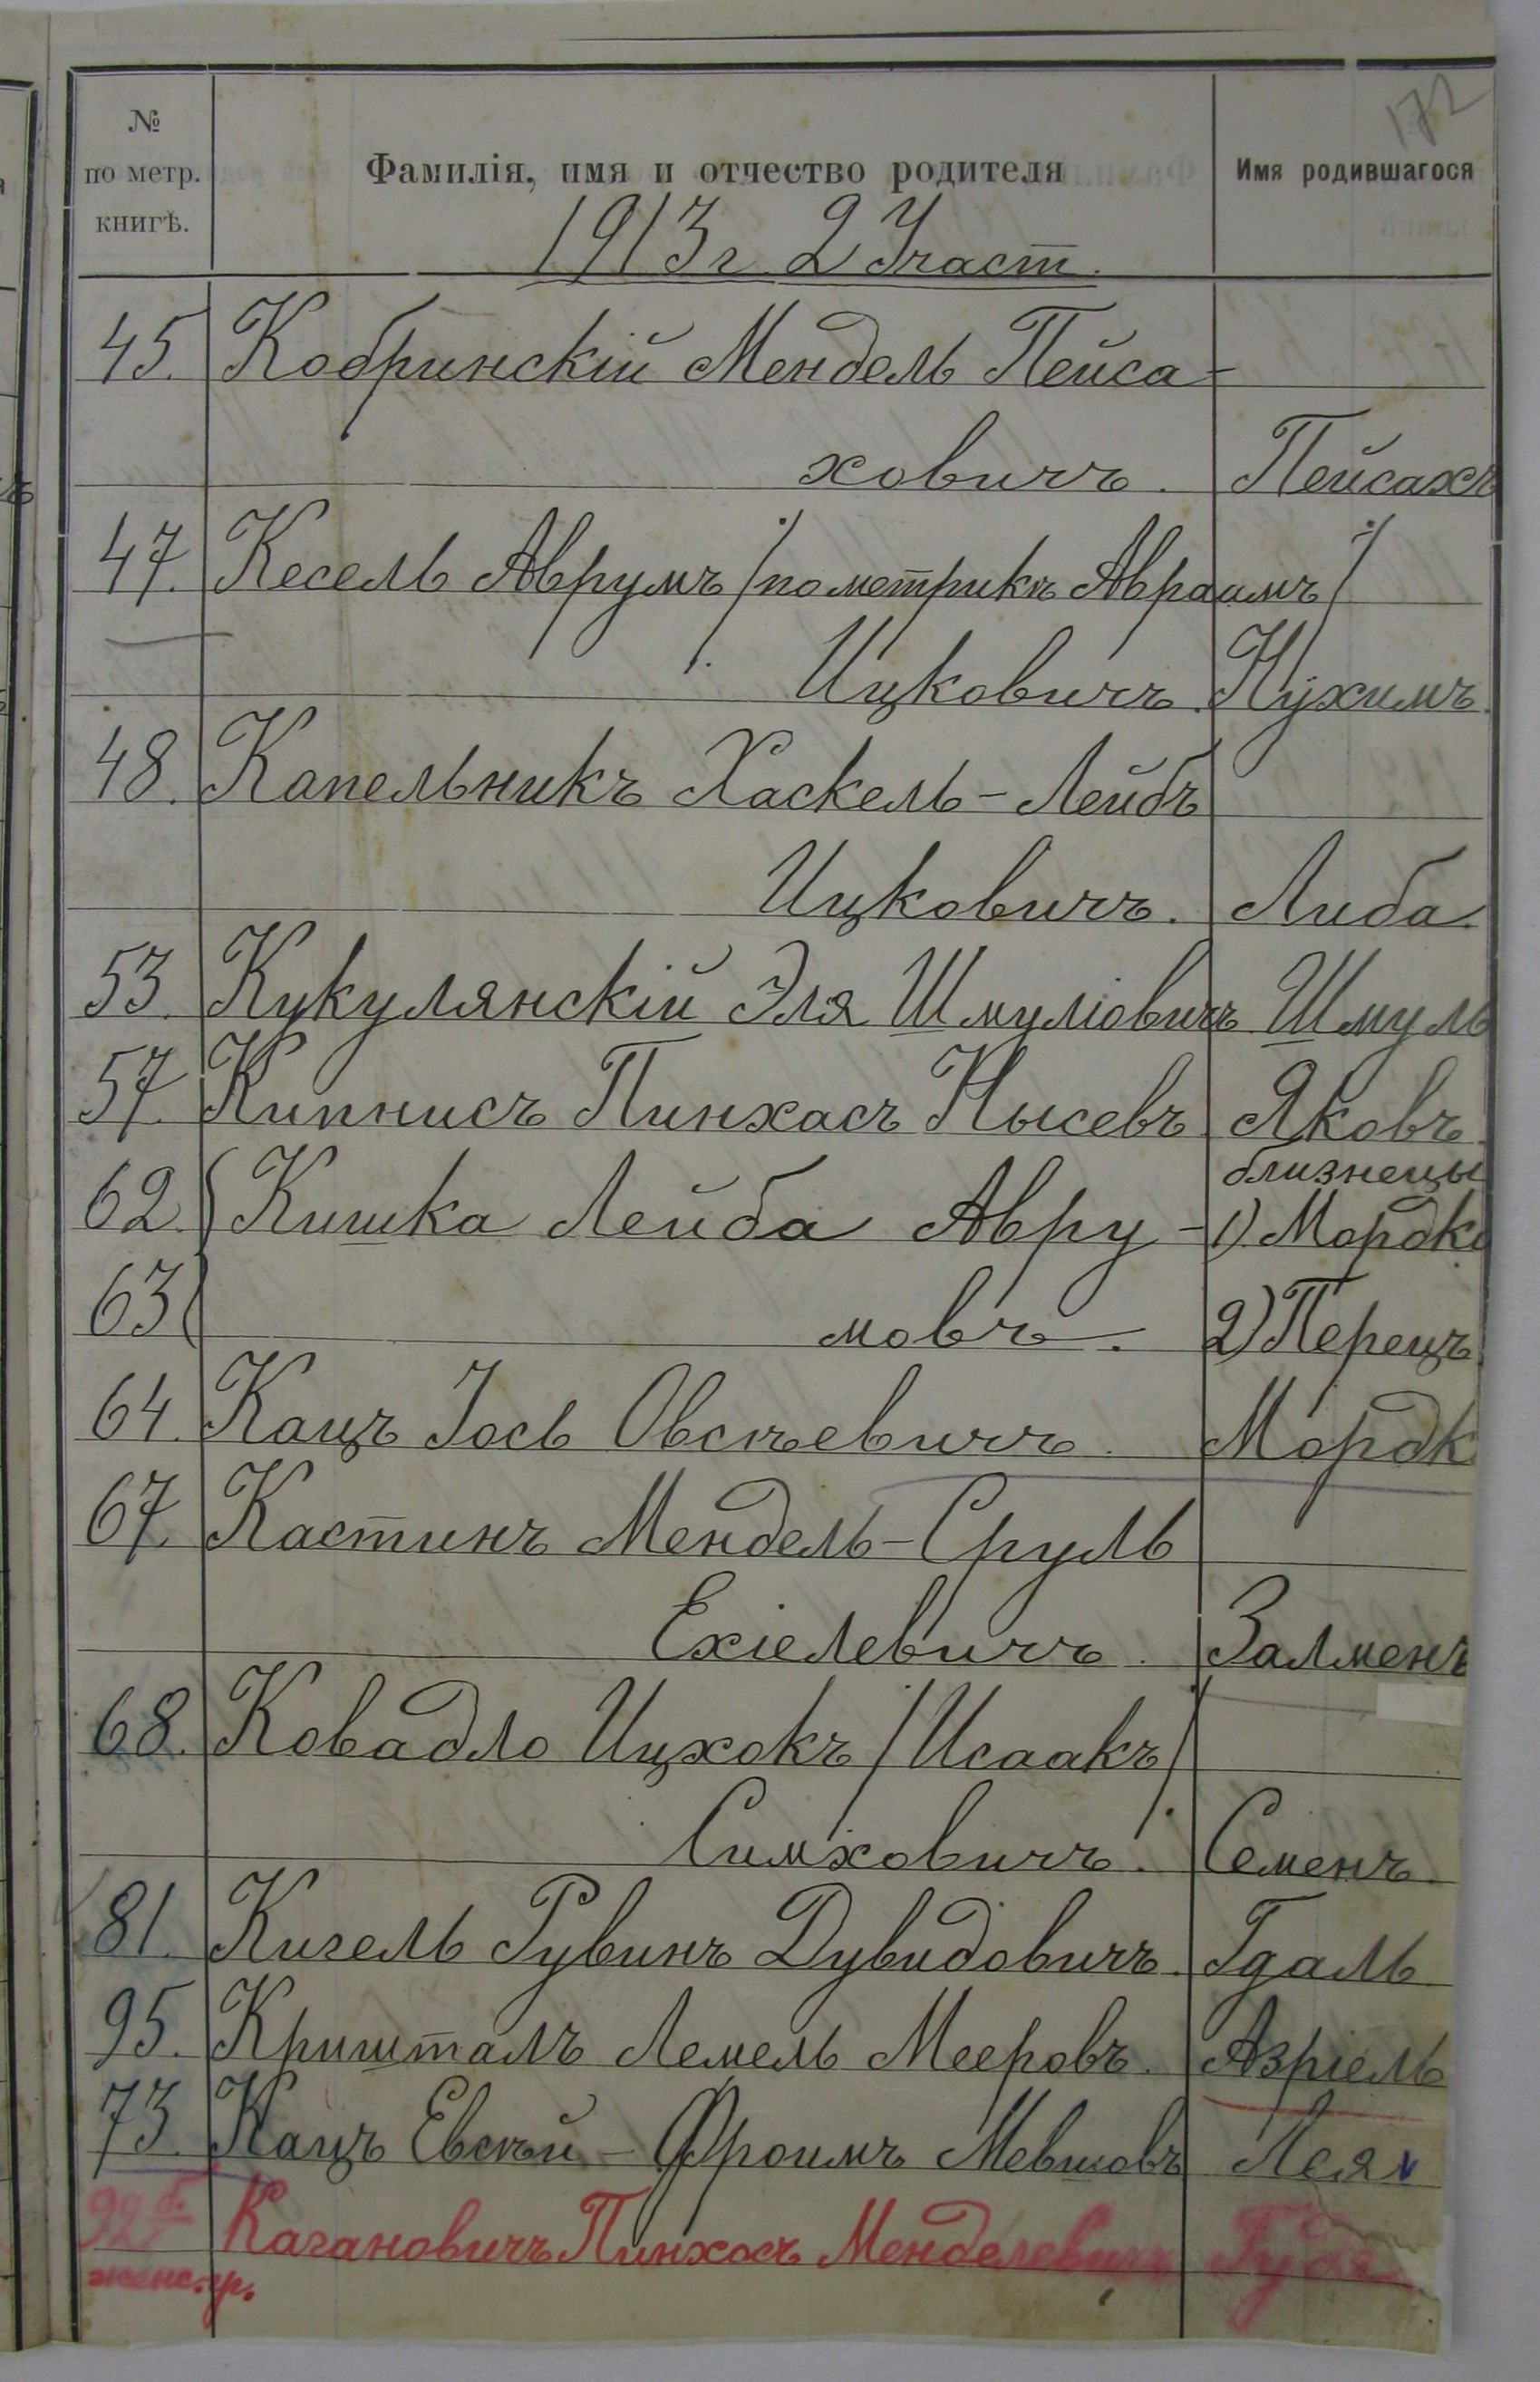 172
№ по метр. книгѣ.
Фамилія, имя и отчество родителя
Имя родившагося
1913 г. 2 Участ.
45. Кобринскій Мендель Пейса-
ховичъ. Пейсахъ
47. Кесель Аврумъ /по метрикѣ Авраамъ/
Ицковичъ. Нухимъ.
48. Капельникъ Хаскель-Лейбъ
Ицковичъ. Либа.
53. Кукулянскій Эля Шмуліовичъ Шмуль
57. Кипнисъ Пинхасъ Нысевъ Яковъ.
близнецы
62. Кишка Лейба Авру- 1) Мордко
63 мовъ. 2) Перецъ
64. Кацъ Іось Овсѣевичъ. Мордк
67. Кастинъ Мендель-Сруль
Ехіелевичъ. Залменъ
68. Ковадло Ицхокъ /Исаакъ/
Симховичъ. Семенъ.
81. Кигель Рувинъ Дувидовичъ. Гдаль
95. Кришталъ Лемель Мееровъ. Азріель
73. Кацъ Евсѣй-Фроимъ Мевшовъ Лея
92 б. Кагановичъ Пинхосъ Менделевичъ
женс. гр.